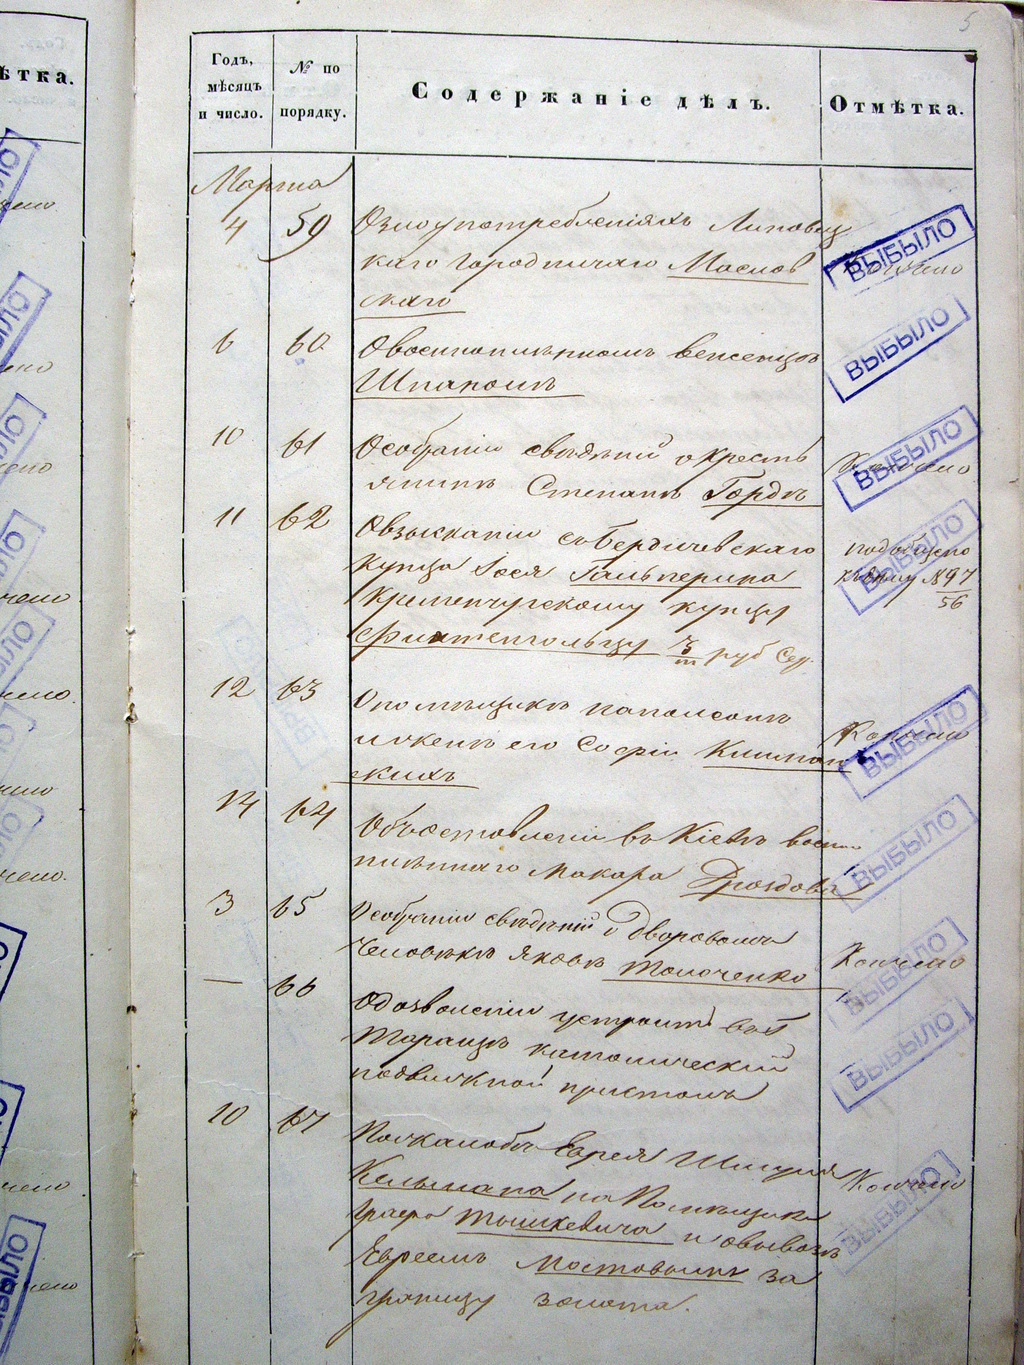 5
Годъ,
мѣсяцъ
и число.
№ по
порядку.
Содержаніе дѣлъ.
Отмѣтка.
ѣтка.
Марта
4 59 О злоупотребленіяхъ Липовец
каго Городничаго Маслов
скаго
ВЫБЫЛО
Кончено
6 60 О военноплѣнномъ венгерцѣ
ВЫБЫЛО
10 61 О собраніи свѣдѣній о крестья
янинѣ Степанѣ Гордѣ
ВЫБЫЛО
Кончено
11 62 О взысканіи съ Бердичевскаго
купца Іося Гальперина
Кременчугскому купцу
руб Сер.
пообщено
къ дѣлу № 97
56
ВЫБЫЛО
12 63 О помѣщикѣ Наполеонѣ
и женѣ его Софіи
скихъ
Кончено
ВЫБЫЛО
14 64 Объ оставленіи въ Кіевѣ воен
плѣннаго Макара Дроздова
ВЫБЫЛО
3 65 О собраніи свѣдѣній о дворовомъ
человѣкѣ Яковѣ Толоченко
Кончено
ВЫБЫЛО
— 66 О дозволеніи устроить въ г
Таращѣ католическій
подвижной престолъ
ВЫБЫЛО
10 67 По жалобѣ Еврея Шмуля
Кельмана на Помѣщика
графа Тышкевича и о вывозѣ
Евреемъ Мостовымъ за
границу золота.
Кончено
ВЫБЫЛО